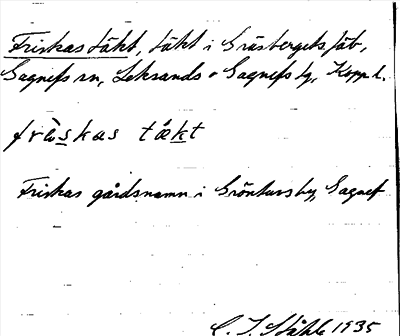 Friskas täkt, täkt i Gräsbergets fäb,
Gagnefs sn, Leksands o Gagnefs tg, Kopp. l.
friskas tækt
Friskas gårdsnamn i Grönbergs by, Gagnef
C. I. Ståhle 1935